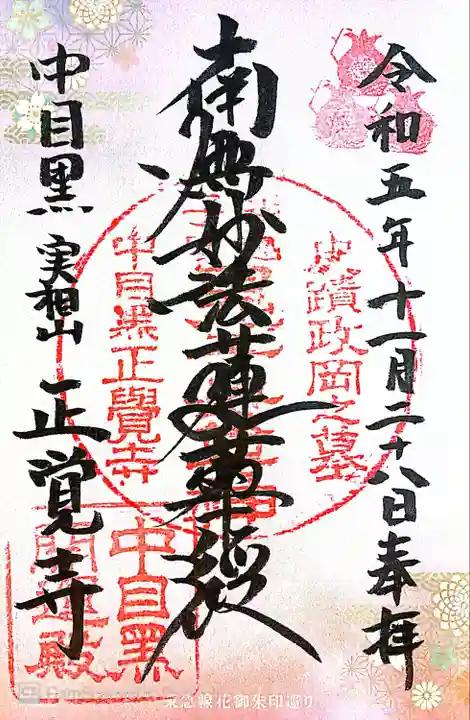 令和五年十一月二十八日奉拝
南無妙法蓮華経
中目黒 実相山 正覚寺
史蹟政岡之墓
中目黒正覺寺
中目黒
開運殿
東急線花御朱印巡り